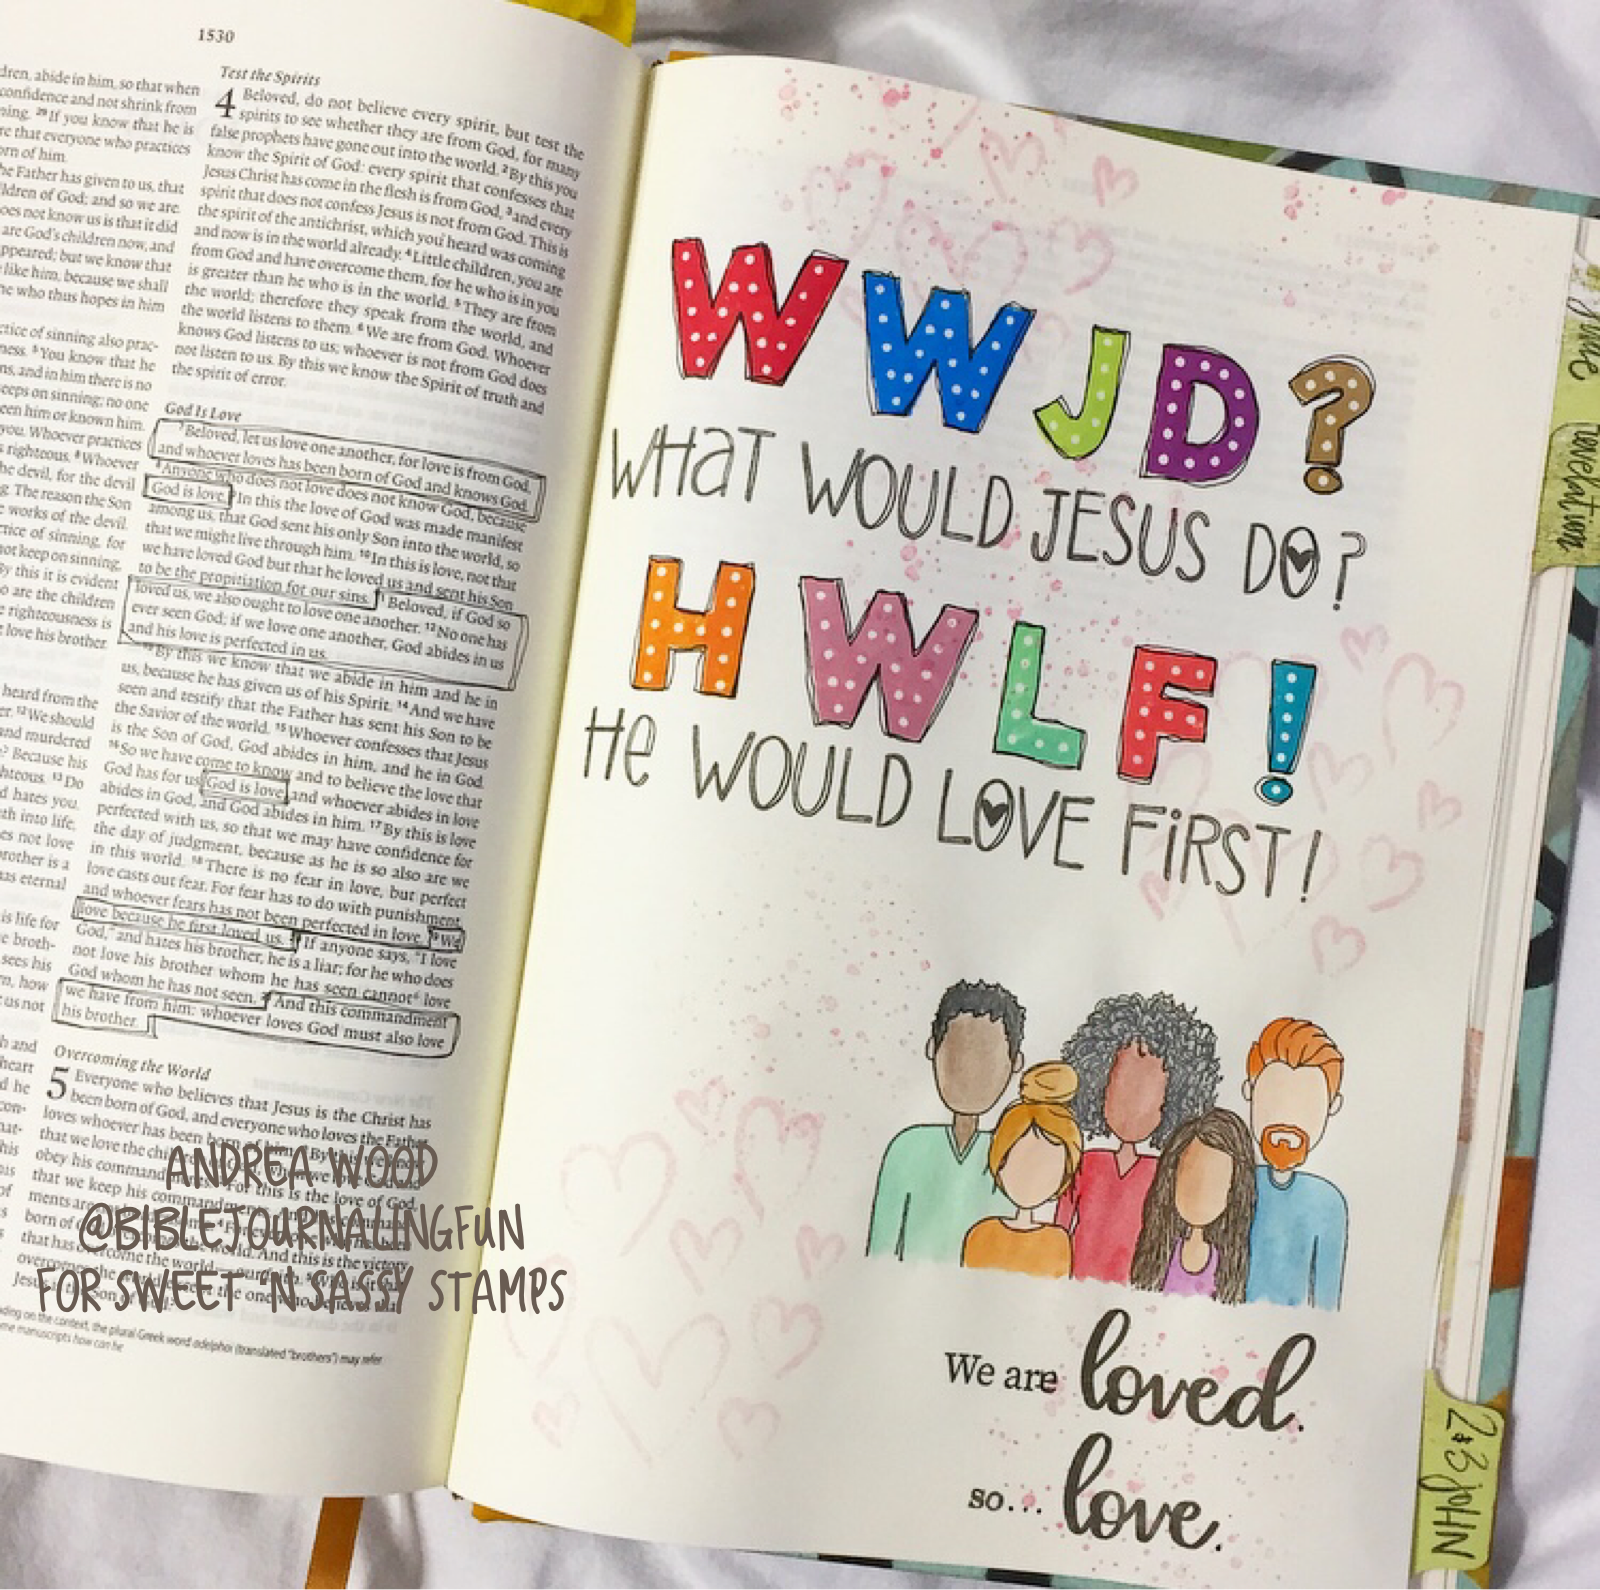 1530
dren, abide in him, so that when
confidence and not shrink from
ning. 29 If you know that he is
re that everyone who practices
orn of him.
he Father has given to us, that
ldren of God; and so we are.
oes not know us is that it did
are God's children now, and
ppeared; but we know that
like him, because we shall
he who thus hopes in him
ctice of sinning also prac-
ness. 5 You know that he
ns, and in him there is no
eeps on sinning; no one
een him or known him.
you. Whoever practices
s righteous. 8 Whoever
he devil, for the devil
g. The reason the Son
e works of the devil.
ctice of sinning, for
not keep on sinning,
By this it is evident
o are the children
e righteousness is
t love his brother.
heard from the
er. 12 We should
and murdered
? Because his
hteous. 13 Do
d hates you.
th into life,
es not love
brother is a
as eternal
is life for
e broth-
sees his
n, how
t us not
h and
heart
d he
con-
hat-
his
of
Test the Spirits
4 Beloved, do not believe every spirit, but test the
spirits to see whether they are from God, for many
false prophets have gone out into the world. 2 By this you
know the Spirit of God: every spirit that confesses that
Jesus Christ has come in the flesh is from God, 3 and every
spirit that does not confess Jesus is not from God. This is
the spirit of the antichrist, which you heard was coming
and now is in the world already. 4 Little children, you are
from God and have overcome them, for he who is in you
is greater than he who is in the world. 5 They are from
the world; therefore they speak from the world, and
the world listens to them. 6 We are from God. Whoever
knows God listens to us; whoever is not from God does
not listen to us. By this we know the Spirit of truth and
the spirit of error.
God Is Love
7 Beloved, let us love one another, for love is from God,
and whoever loves has been born of God and knows God.
8 Anyone who does not love does not know God, because
God is love. 9 In this the love of God was made manifest
among us, that God sent his only Son into the world, so
that we might live through him. 10 In this is love, not that
we have loved God but that he loved us and sent his Son
to be the propitiation for our sins. 11 Beloved, if God so
loved us, we also ought to love one another. 12 No one has
ever seen God; if we love one another, God abides in us
and his love is perfected in us.
13 By this we know that we abide in him and he in
us, because he has given us of his Spirit. 14 And we have
seen and testify that the Father has sent his Son to be
the Savior of the world. 15 Whoever confesses that Jesus
is the Son of God, God abides in him, and he in God.
16 So we have come to know and to believe the love that
God has for us. God is love, and whoever abides in love
abides in God, and God abides in him. 17 By this is love
perfected with us, so that we may have confidence for
the day of judgment, because as he is so also are we
in this world. 18 There is no fear in love, but perfect
love casts out fear. For fear has to do with punishment,
and whoever fears has not been perfected in love. 19 We
love because he first loved us. 20 If anyone says, "I love
God," and hates his brother, he is a liar; for he who does
not love his brother whom he has seen cannot love
God whom he has not seen. 21 And this commandment
we have from him: whoever loves God must also love
his brother.
Overcoming the World
5 Everyone who believes that Jesus is the Christ has
been born of God, and everyone who loves the Father
loves whoever has been born of him. 2 By this we know
that we love the
obey his
that we keep his commandments.
ments are
born of
that has overcome the world—our faith.
overcomes the the one who believes that
Jesus is the Son of God?
ding on the context, the plural Greek word adelphoi (translated "brothers") may refer
me manuscripts how can he
ANDREA WOOD
@BIBLEJOURNALINGFUN
FOR SWEET 'N SASSY STAMPS
WWJD?
WHaT WOULD JESUS DO?
HWLF!
He WOULD LOVE FiRST!
We are loved.
so... love.
Jude
Revelation
2&3 JOHN